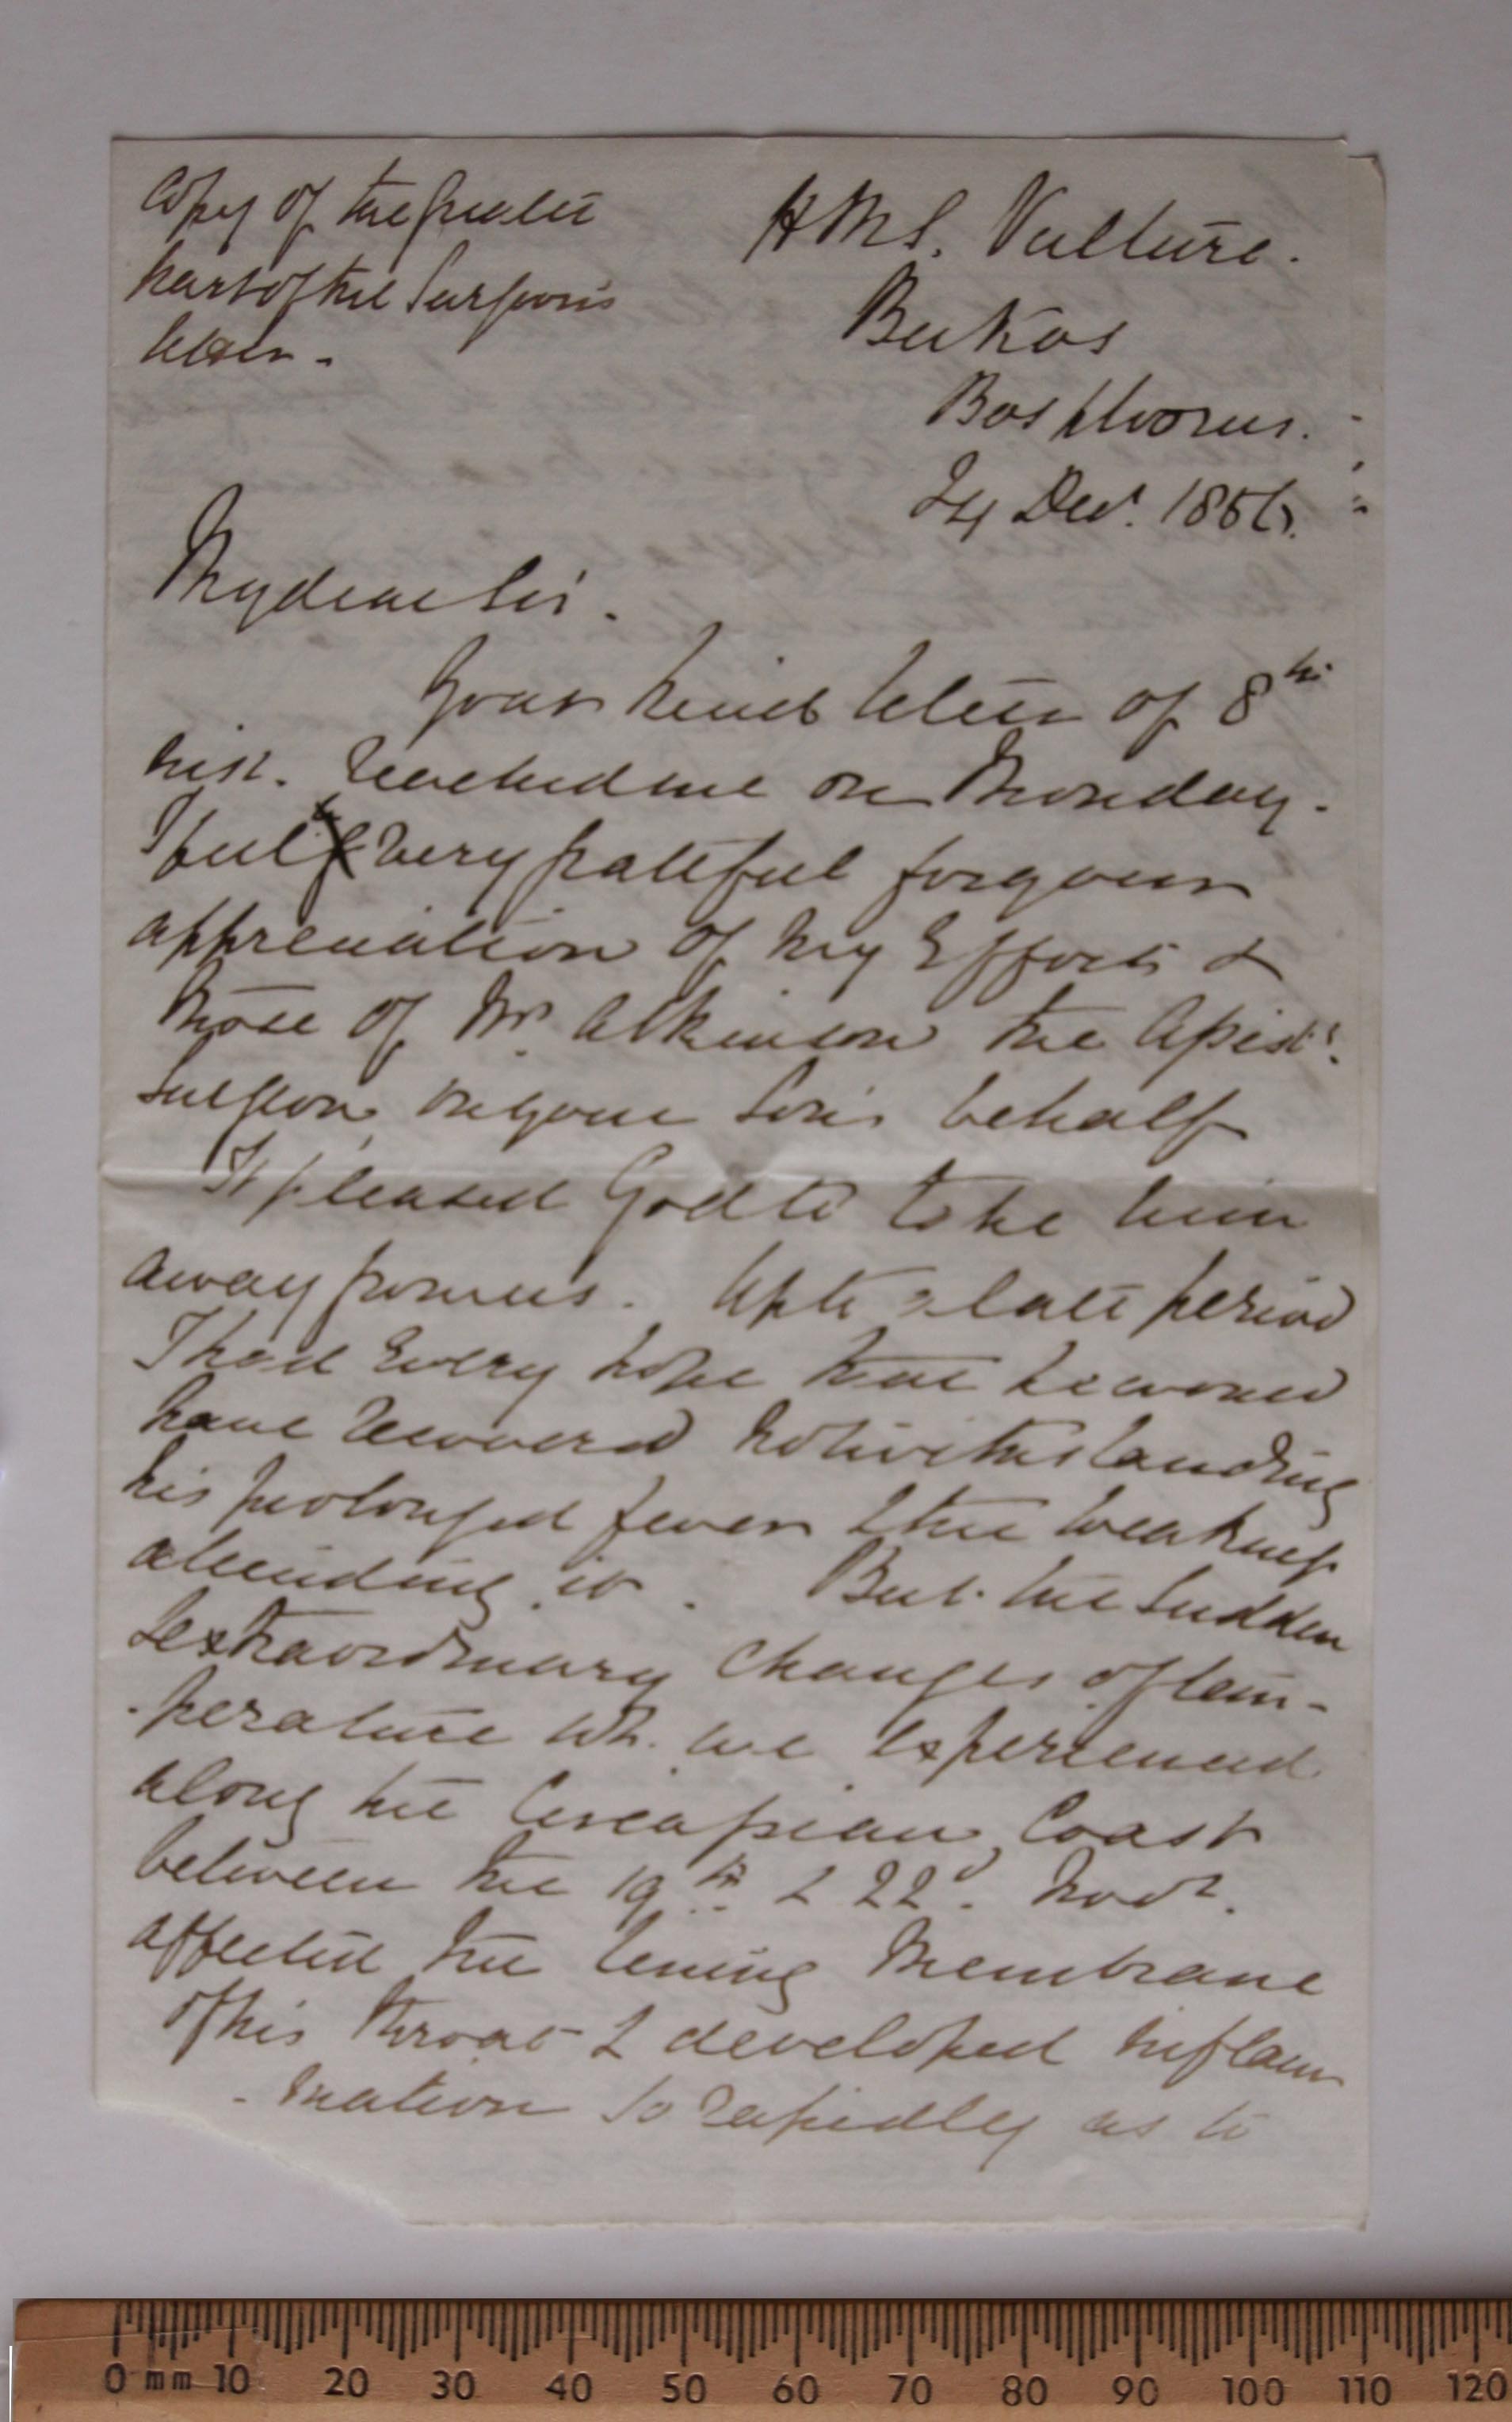 Copy of the greater
part of the Surgeon's
letter -
H.M.S. Vulture.
Beikos
Bosphorus.
24 Decr. 1856.
My dear Sir.
Your kind letter of 8th
inst. reached me on Monday.
I feel very grateful for your
appreciation of my Efforts &
those of Mr. Atkinson the Assist.
Surgeon on your Son's behalf
It pleased God to take him
away from us. Up to a late period
I had every hope that he would
have recovered notwithstanding
his prolonged fever & the weakness
attending it. But the sudden
& extraordinary changes of tem-
-perature wh. we experienced
along the Circassian Coast
between the 19th & 22d. Novr.
affected the lining Membrane
of his throat & developed inflam
-mation so rapidly as to
0 mm 10 20 30 40 50 60 70 80 90 100 110 120